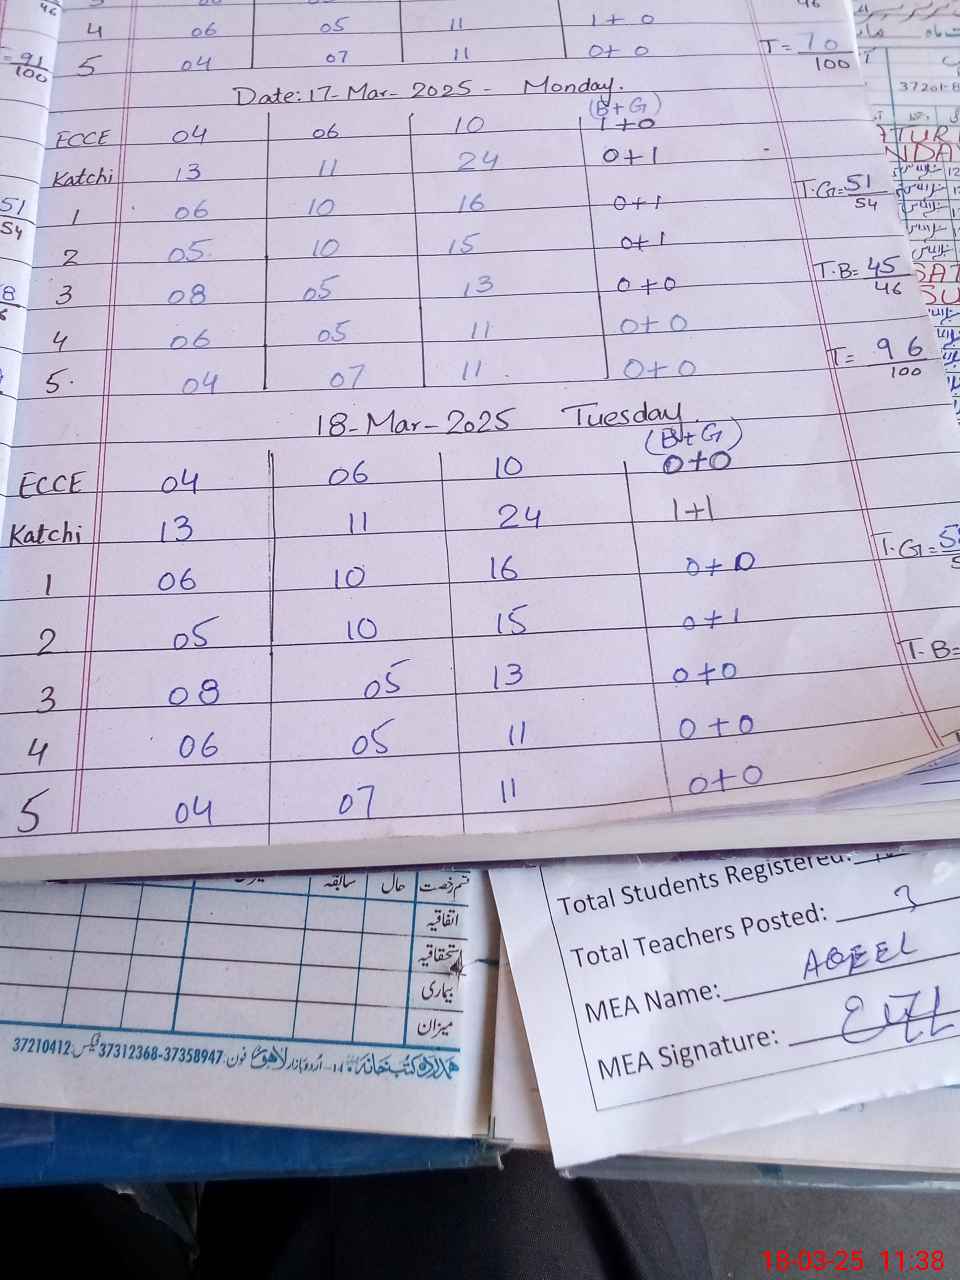 4 06 05 11 1+0
5 04 07 11 0+0 T= 70/100
91/100
Date: 17-Mar-2025 - Monday.
(B+G)
ECCE 04 06 10 1+0
Katchi 13 11 24 0+1
1 06 10 16 0+1 T.G=51/54
2 05 10 15 0+1
3 08 05 13 0+0 T.B=45/46
4 06 05 11 0+0
5. 04 07 11 0+0 T= 96/100
51/54
18-Mar-2025 Tuesday.
(B+G)
ECCE 04 06 10 0+0
Katchi 13 11 24 1+1
1 06 10 16 0+0 T.G=
2 05 10 15 0+1
3 08 05 13 0+0 T-B=
4 06 05 11 0+0
5 04 07 11 0+0
Total Students Registered:
Total Teachers Posted: 3
MEA Name: AQEEL
MEA Signature:
قسم رخصت حال سابقہ میزان
اتفاقیہ
استحقاقیہ
بیماری
میزان
ہمدرد کتب خانہ ۱۴- اُردو بازار لاہور فون: 37312368-37358947 فیکس: 37210412
18-03-25 11:38